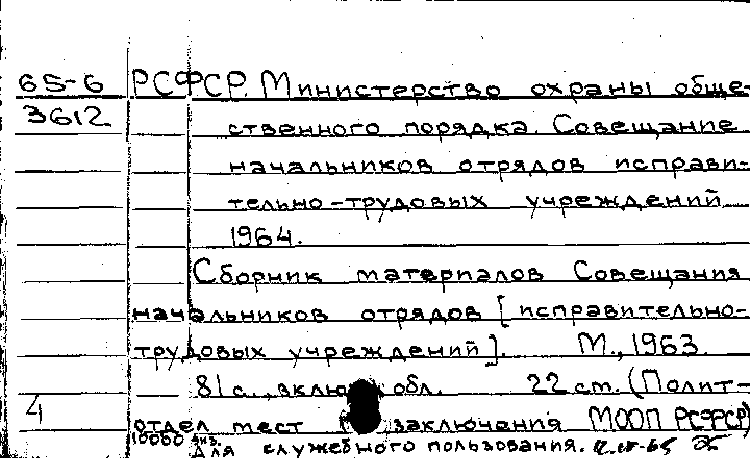 65-6 РСФСР. Министерство охраны обще-
3612 ственного порядка. Совещание
начальников отрядов исправи-
тельно-трудовых учреждений
1964.
Сборник материалов Совещания
начальников отрядов [исправительно-
трудовых учреждений]. М., 1963.
81 с., включ. обл. 22 см. (Полит-
4 отдел мест заключения МООП РСФСР)
10000 экз. Для служебного пользования.